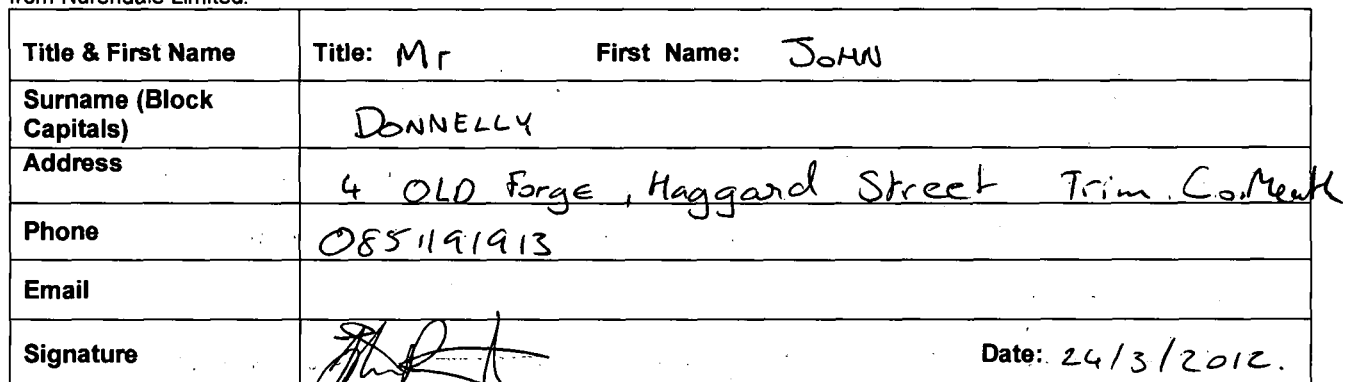 from Nurendale Limited.
Title & First Name Title: Mr First Name: JOHN
Surname (Block
Capitals) DONNELLY
Address 4 OLD Forge, Haggard Street Trim. Co. Meath
Phone 0851191913
Email
Signature Date: 24/3/2012.